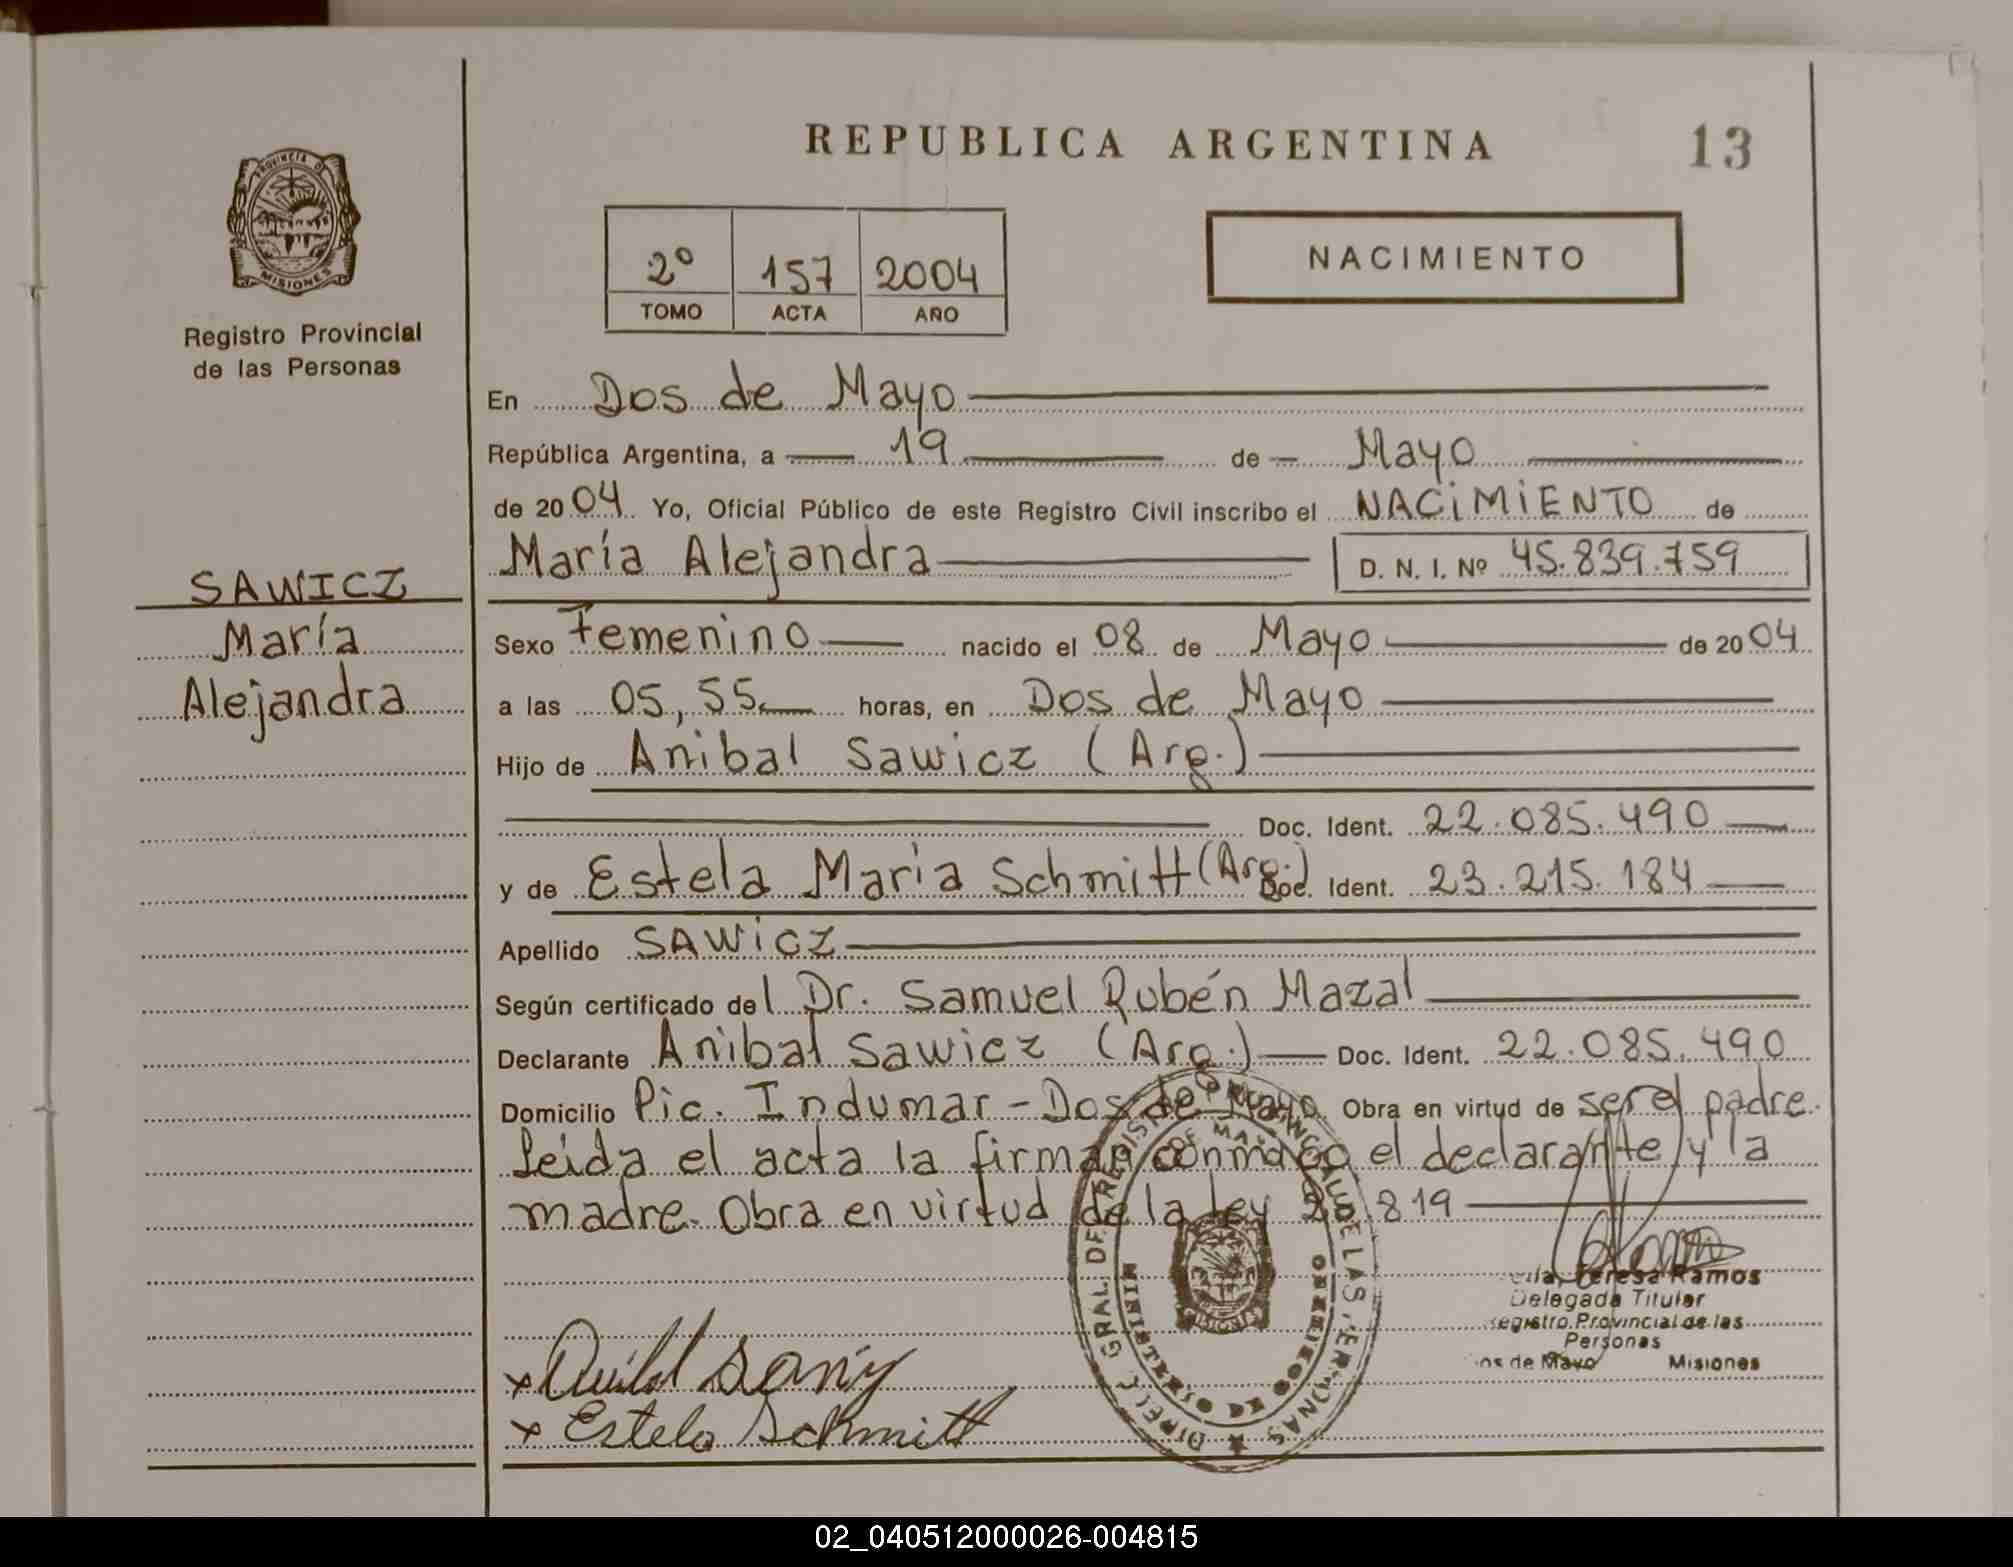 REPUBLICA ARGENTINA 13
PROVINCIA DE
MISIONES
Registro Provincial
de las Personas
2º 157 2004
TOMO ACTA AÑO
NACIMIENTO
En Dos de Mayo
República Argentina, a 19 de Mayo
de 2004 Yo, Oficial Público de este Registro Civil inscribo el NACIMIENTO de
María Alejandra D. N. I. Nº 45.839.759
SAWICZ
María
Alejandra
Sexo Femenino nacido el 08 de Mayo de 2004
a las 05,55 horas, en Dos de Mayo
Hijo de Anibal Sawicz (Arg.)
Doc. Ident. 22.085.490
y de Estela Maria Schmitt (Arg.) Doc. Ident. 23.215.184
Apellido SAWICZ
Según certificado del Dr. Samuel Rubén Mazal
Declarante Anibal Sawicz (Arg.) Doc. Ident. 22.085.490
Domicilio Pic. Indumar - Dos de Mayo Obra en virtud de ser el padre.
Leida el acta la firman conmigo el declarante y la
madre. Obra en virtud de la ley .819
Teresa Ramos
Delegada Titular
Registro Provincial de las
Personas
Dos de Mayo Misiones
x Estela Schmitt
02_040512000026-004815